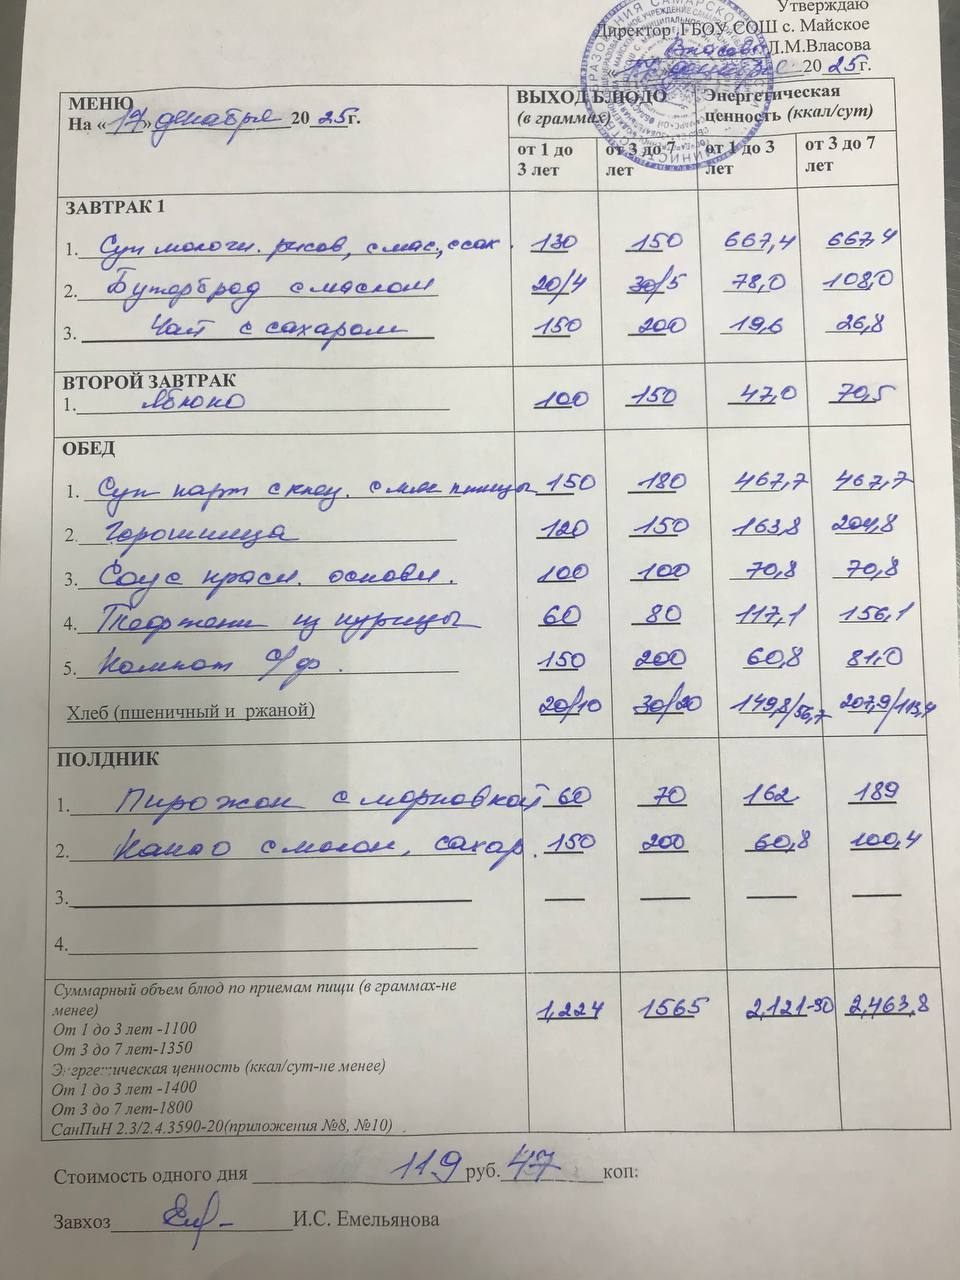 Утверждаю
Директор ГБОУ СОШ с. Майское
Власова Л.М.Власова
20 25 г.
МЕНЮ
На «17» декабря 2025г.
ВЫХОД БЛЮДО
(в граммах)
Энергетическая
ценность (ккал/сут)
от 1 до 3 лет
от 3 до 7 лет
от 1 до 3 лет
от 3 до 7 лет
ЗАВТРАК 1
1. Суп молочн. рисов, с мас., с сах. 130 150 667,4 667,4
2. Бутерброд с маслом 20/4 30/5 78,0 108,0
3. Чай с сахаром 150 200 19,6 26,8
ВТОРОЙ ЗАВТРАК
1. Яблоко 100 150 47,0 70,5
ОБЕД
1. Суп карт с клец. с мяс птицы 150 180 467,7 467,7
2. Горошница 120 150 163,8 204,8
3. Соус красн. основн. 100 100 70,8 70,8
4. Тефтели из курицы 60 80 117,1 156,1
5. Компот с/ф. 150 200 60,8 81,0
Хлеб (пшеничный и ржаной) 20/10 30/20 149,8/56,7 207,9/113,4
ПОЛДНИК
1. Пирожок с морковкой 60 70 162 189
2. Какао с молок, сахар. 150 200 60,8 100,4
3. — — — —
4.
Суммарный объем блюд по приемам пищи (в граммах-не
менее) 1,224 1565 2,121-90 2,463,8
От 1 до 3 лет -1100
От 3 до 7 лет-1350
Энергетическая ценность (ккал/сут-не менее)
От 1 до 3 лет -1400
От 3 до 7 лет-1800
СанПиН 2.3/2.4.3590-20(приложения №8, №10)
Стоимость одного дня 119 руб. 47 коп:
Завхоз И.С. Емельянова